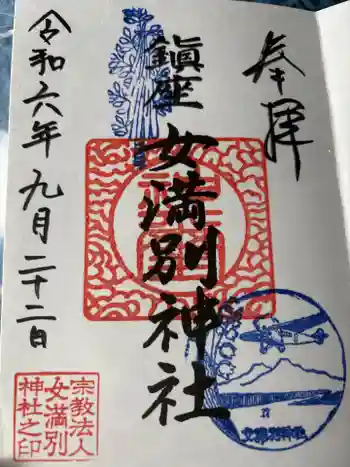 奉拝
鎮座
女満別神社
令和六年九月二十二日
宗教法人
女満別
神社之印
女満別神社